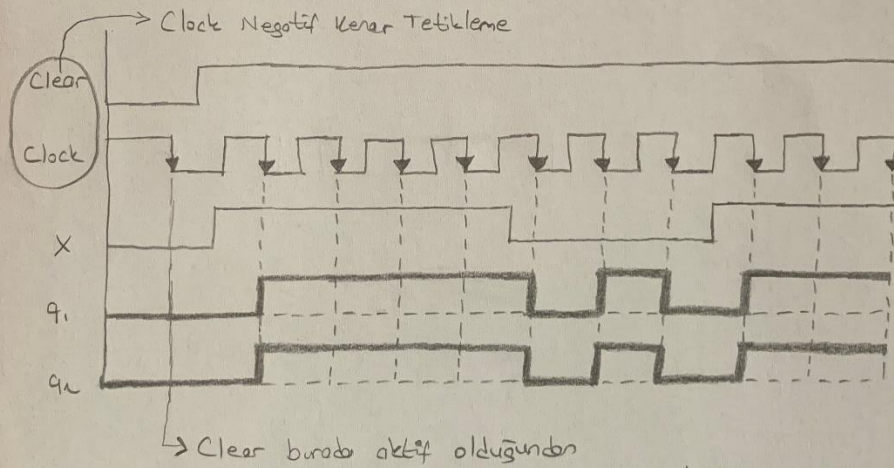 Clock Negatif Kenar Tetikleme
Clear
Clock
X
q₁
q₂
Clear burada aktif olduğundan